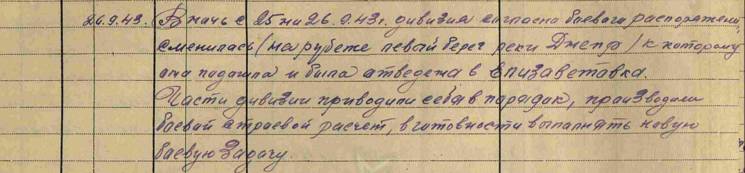 26.9.43. В ночь с 25 на 26.9.43г. дивизия согласно боевого распоряжения,
сменилась /на рубеже левый берег реки Днепр/ к которому
она подошла и была отведена в Елизаветовка.
Части дивизии приводили себя в порядок, производили
боевой строевой расчет, в готовности выполнять новую
боевую задачу.